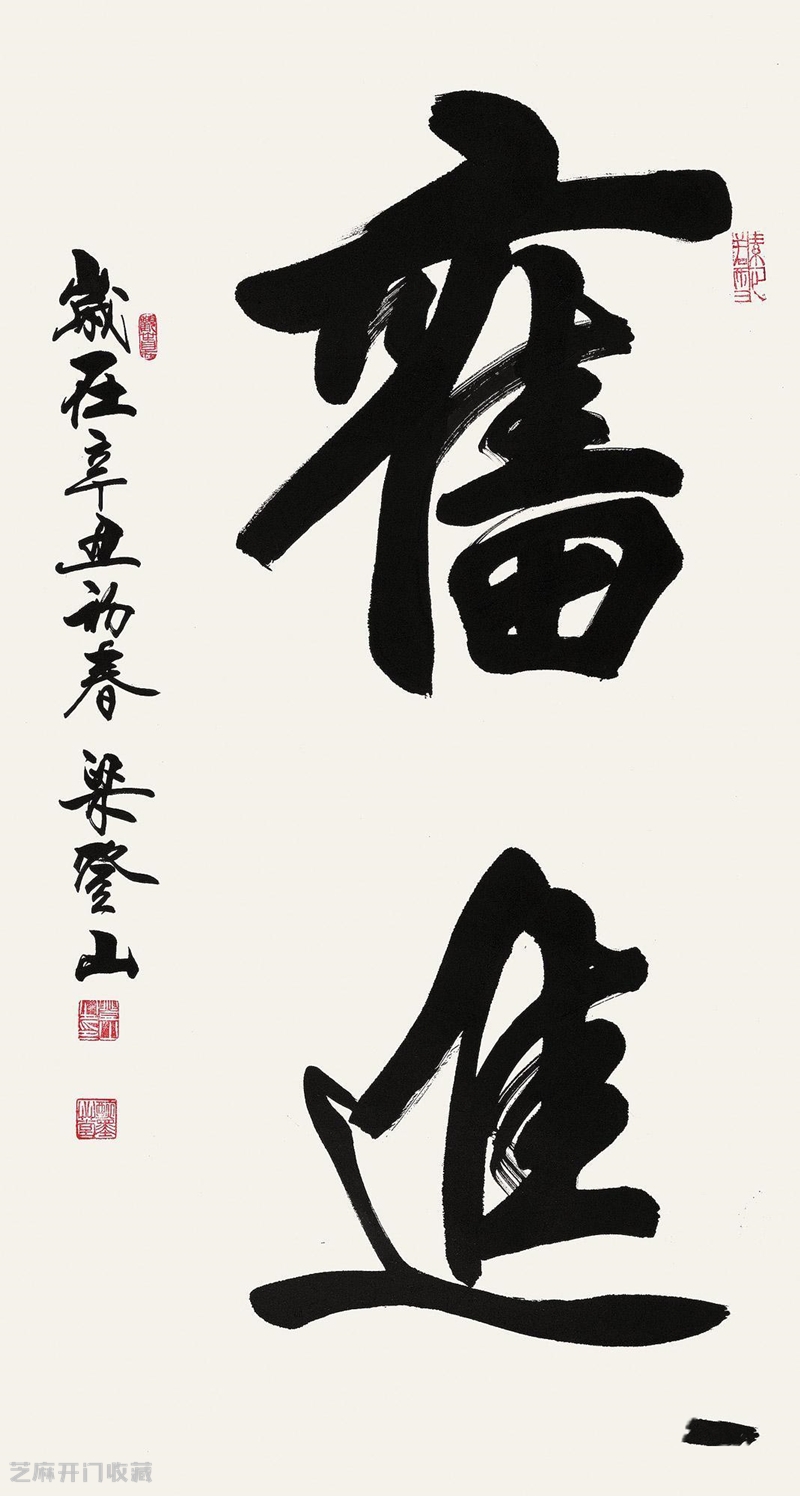 奮進
歲在辛丑初春 梁登山
芝麻开门收藏